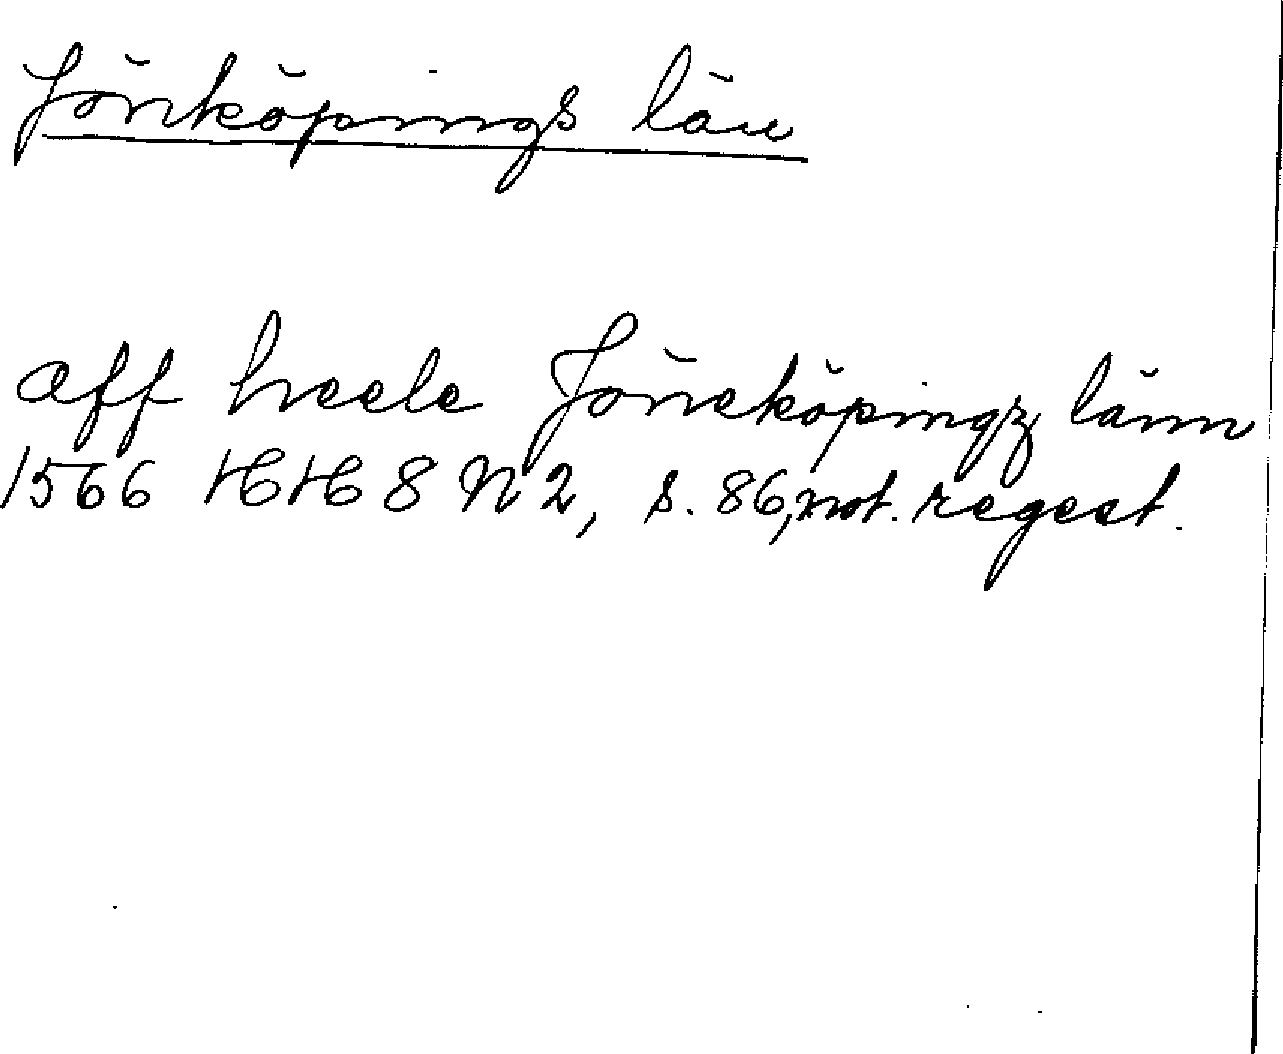 Jönköpings län
aff heele Jöneköpingz länn
1566 HH 8 N 2, s. 86, not. regest.